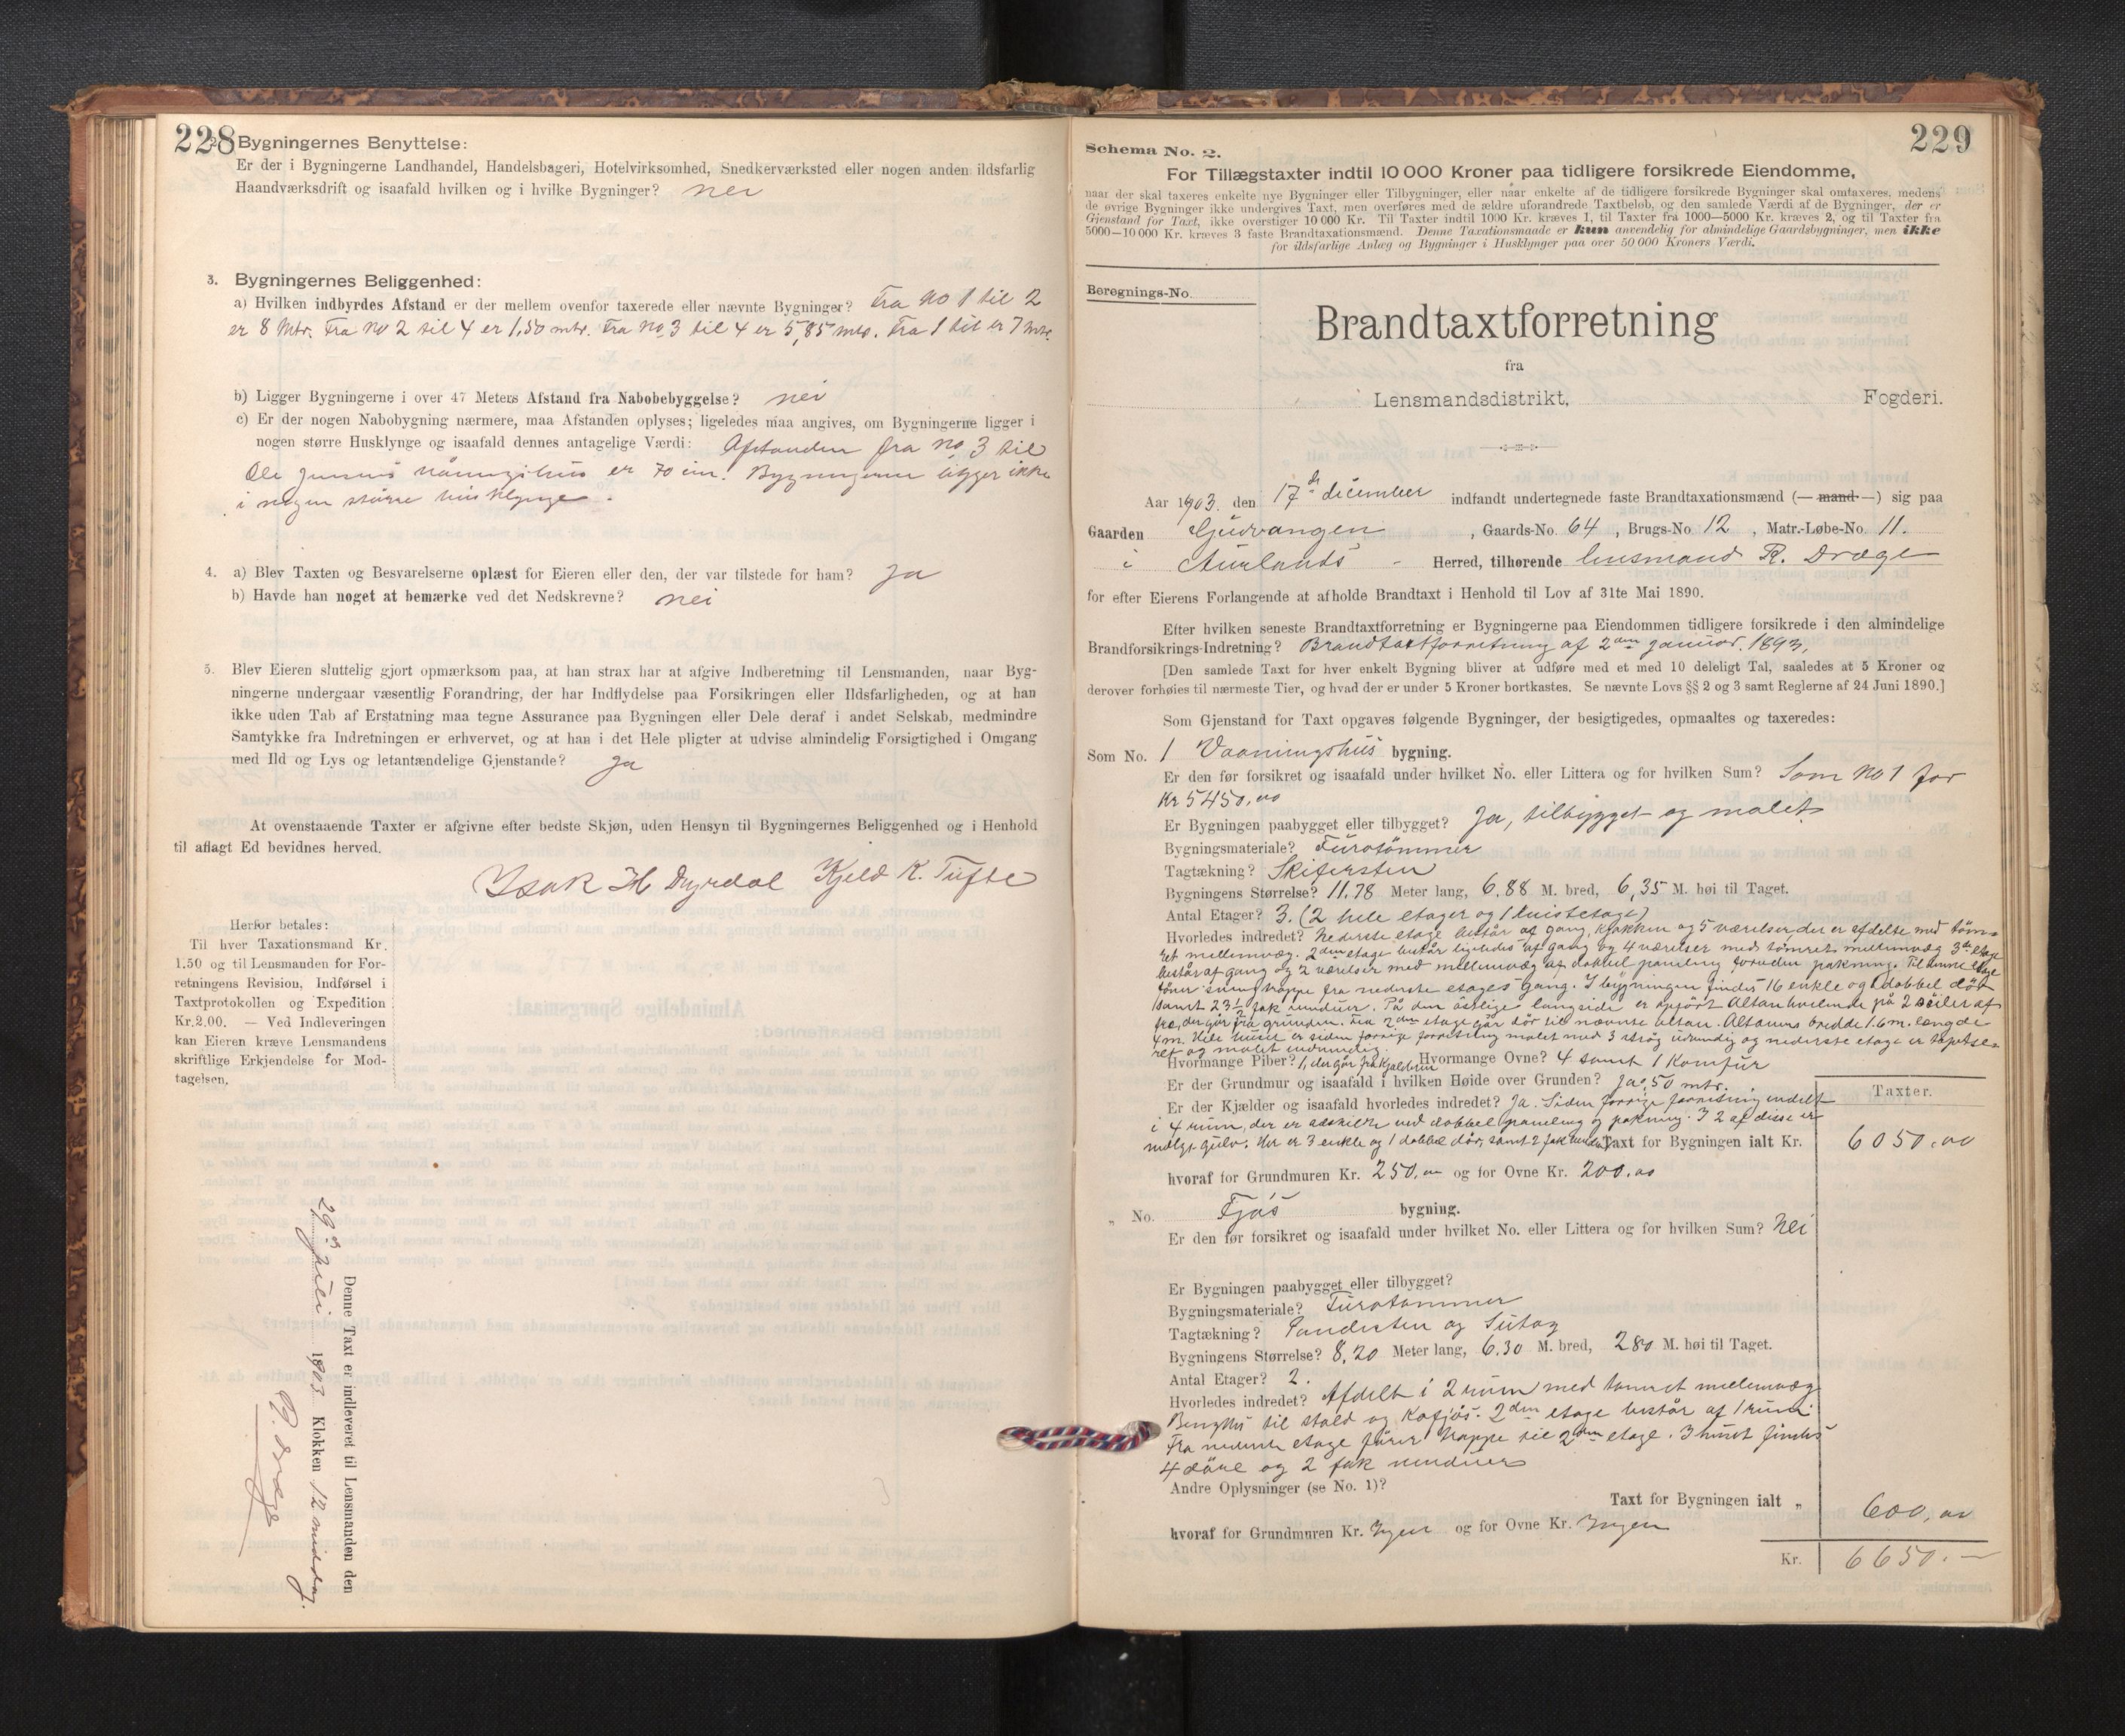 228
2. Bygningernes Benyttelse:
Er der i Bygningerne Landhandel, Handelsbageri, Hotelvirksomhed, Snedkerværksted eller nogen anden ildsfarlig
Haandværksdrift og isaafald hvilken og i hvilke Bygninger? nei
3. Bygningernes Beliggenhed:
a) Hvilken indbyrdes Afstand er der mellem ovenfor taxerede eller nævnte Bygninger? Fra No 1 til 2
er 8 Mtr. Fra No 2 til 4 er 1,50 mtr. Fra No 3 til 4 er 5,85 mtr. Fra 1 til er 7 mtr.
b) Ligger Bygningerne i over 47 Meters Afstand fra Nabobebyggelse? nei
c) Er der nogen Nabobygning nærmere, maa Afstanden oplyses; ligeledes maa angives, om Bygningerne ligger i
nogen større Husklynge og isaafald dennes antagelige Værdi: Afstanden fra No 3 til
Ole Jensens våningshus er 70 cm. Bygningerne ligger ikke
i nogen större husklynge.
4. a) Blev Taxten og Besvarelserne oplæst for Eieren eller den, der var tilstede for ham? Ja
b) Havde han noget at bemærke ved det Nedskrevne? nei
5. Blev Eieren sluttelig gjort opmærksom paa, at han strax har at afgive Indberetning til Lensmanden, naar Byg-
ningerne undergaar væsentlig Forandring, der har Indflydelse paa Forsikringen eller Ildsfarligheden, og at han
ikke uden Tab af Erstatning maa tegne Assurance paa Bygningen eller Dele deraf i andet Selskab, medmindre
Samtykke fra Indretningen er erhvervet, og at han i det Hele pligter at udvise almindelig Forsigtighed i Omgang
med Ild og Lys og letantændelige Gjenstande? Ja
At ovenstaaende Taxter er afgivne efter bedste Skjøn, uden Hensyn til Bygningernes Beliggenhed og i Henhold
til aflagt Ed bevidnes herved.
Isak H Dyrdal Kjeld K. Tufte
Herfor betales:
Til hver Taxationsmand Kr.
1.50 og til Lensmanden for For-
retningens Revision, Indførsel i
Taxtprotokollen og Expedition
Kr. 2.00. — Ved Indleveringen
kan Eieren kræve Lensmandens
skriftlige Erkjendelse for Mod-
tagelsen.
Denne Taxt er indleveret til Lensmanden den
29de Juli 1903 Klokken 12 middag.
R. Dræge
229
Schema No. 2.
For Tillægstaxter indtil 10 000 Kroner paa tidligere forsikrede Eiendomme,
naar der skal taxeres enkelte nye Bygninger eller Tilbygninger, eller naar enkelte af de tidligere forsikrede Bygninger skal omtaxeres, medens
de øvrige Bygninger ikke undergives Taxt, men overføres med de ældre uforandrede Taxtbeløb, og den samlede Værdi af de Bygninger, der er
Gjenstand for Taxt, ikke overstiger 10 000 Kr. Til Taxter indtil 1000 Kr. kræves 1, til Taxter fra 1000—5000 Kr. kræves 2, og til Taxter fra
5000—10 000 Kr. kræves 3 faste Brandtaxationsmænd. Denne Taxationsmaade er kun anvendelig for almindelige Gaardsbygninger, men ikke
for ildsfarlige Anlæg og Bygninger i Husklynger paa over 50 000 Kroners Værdi.
Beregnings-No.
Brandtaxtforretning
fra
Lensmandsdistrikt, Fogderi.
Aar 1903. den 17de december indfandt undertegnede faste Brandtaxationsmænd (— mand —) sig paa
Gaarden Gjudvangen, Gaards-No. 64, Brugs-No. 12, Matr.-Løbe-No. 11.
i Aurlands Herred, tilhørende lensmand R. Dræge
for efter Eierens Forlangende at afholde Brandtaxt i Henhold til Lov af 31te Mai 1890.
Efter hvilken seneste Brandtaxtforretning er Bygningerne paa Eiendommen tidligere forsikrede i den almindelige
Brandforsikrings-Indretning? Brandtaxtforretning af 2den januar. 1893.
[Den samlede Taxt for hver enkelt Bygning bliver at udføre med et med 10 deleligt Tal, saaledes at 5 Kroner og
derover forhøies til nærmeste Tier, og hvad der er under 5 Kroner bortkastes. Se nævnte Lovs §§ 2 og 3 samt Reglerne af 24 Juni 1890.]
Som Gjenstand for Taxt opgaves følgende Bygninger, der besigtigedes, opmaaltes og taxeredes:
Som No. 1 Vaaningshus bygning.
Er den før forsikret og isaafald under hvilket No. eller Littera og for hvilken Sum? Som No 1 for
Kr 5450,00
Er Bygningen paabygget eller tilbygget? Ja, tilbygget og malet.
Bygningsmateriale? Furutömmer
Tagtækning? Skifersten
Bygningens Størrelse? 11.78 Meter lang, 6.88 M. bred, 6,35 M. høi til Taget.
Antal Etager? 3. (2 hele etager og 1 kvistetage)
Hvorledes indredet? Nederste etage består af gang, kjøkken og 5 værelser, der er afdelte med töm-
ret mellemvæg. 2den etage består ligeledes af gang og 4 værelser med tömret mellemvæg 3de etage
består af gang og 2 værelser med mellemvæg af dobbel paneling foruden pakning. Til denne etage
förer samt trappe fra nederste etages gang. I bygningen findes 16 enkle og 1 dobbel dör
samt 23 1/2 fak vinduer. På den östlige langside er opfört Altan hvilende på 2 söiler af
træ, der går fra grunden. Fra 2den etage går dör til nævnte altan. Altanens bredde 1.6 m. længde
4 m. Hele huset er siden forrige forretning malet med 3 strög udvendig og nederste etage er tapetse-
ret og malet indvendig.
Hvormange Piber? 1, der går fra kjælderen Hvormange Ovne? 4 samt 1 Komfur
Er der Grundmur og isaafald i hvilken Høide over Grunden? Ja 0,50 mtr.
Er der Kjælder og isaafald hvorledes indredet? Ja. Siden forrige forretning indelt
i 4 rum, der er adskilte ved dobbel paneling og pakning. I 2 af disse er
indlagt gulv. Her er 3 enkle og 1 dobbel dör, samt 2 fak vinduer
Taxter.
Taxt for Bygningen ialt Kr. 6050,00
hvoraf for Grundmuren Kr. 250,00 og for Ovne Kr. 200,00
„ No. Fjös bygning.
Er den før forsikret og isaafald under hvilket No. eller Littera og for hvilken Sum? Nei
Er Bygningen paabygget eller tilbygget?
Bygningsmateriale? Furutømmer
Tagtækning? Pandesten og
Bygningens Størrelse? 8,20 Meter lang, 6.30 M. bred, 280 M. høi til Taget.
Antal Etager? 2.
Hvorledes indredet? Afdelt i 2 rum med tømret mellemvæg
Benyttes til stald og Kofjös. 2den etage består af 1 rum.
Fra nederste etage förer trappe til 2den etage. I huset findes
4 döre og 2 fak vinduer
Andre Oplysninger (se No. 1)?
Taxt for Bygningen ialt „ 600,00
hvoraf for Grundmuren Kr. Ingen og for Ovne Kr. Ingen
Kr. 6650.—